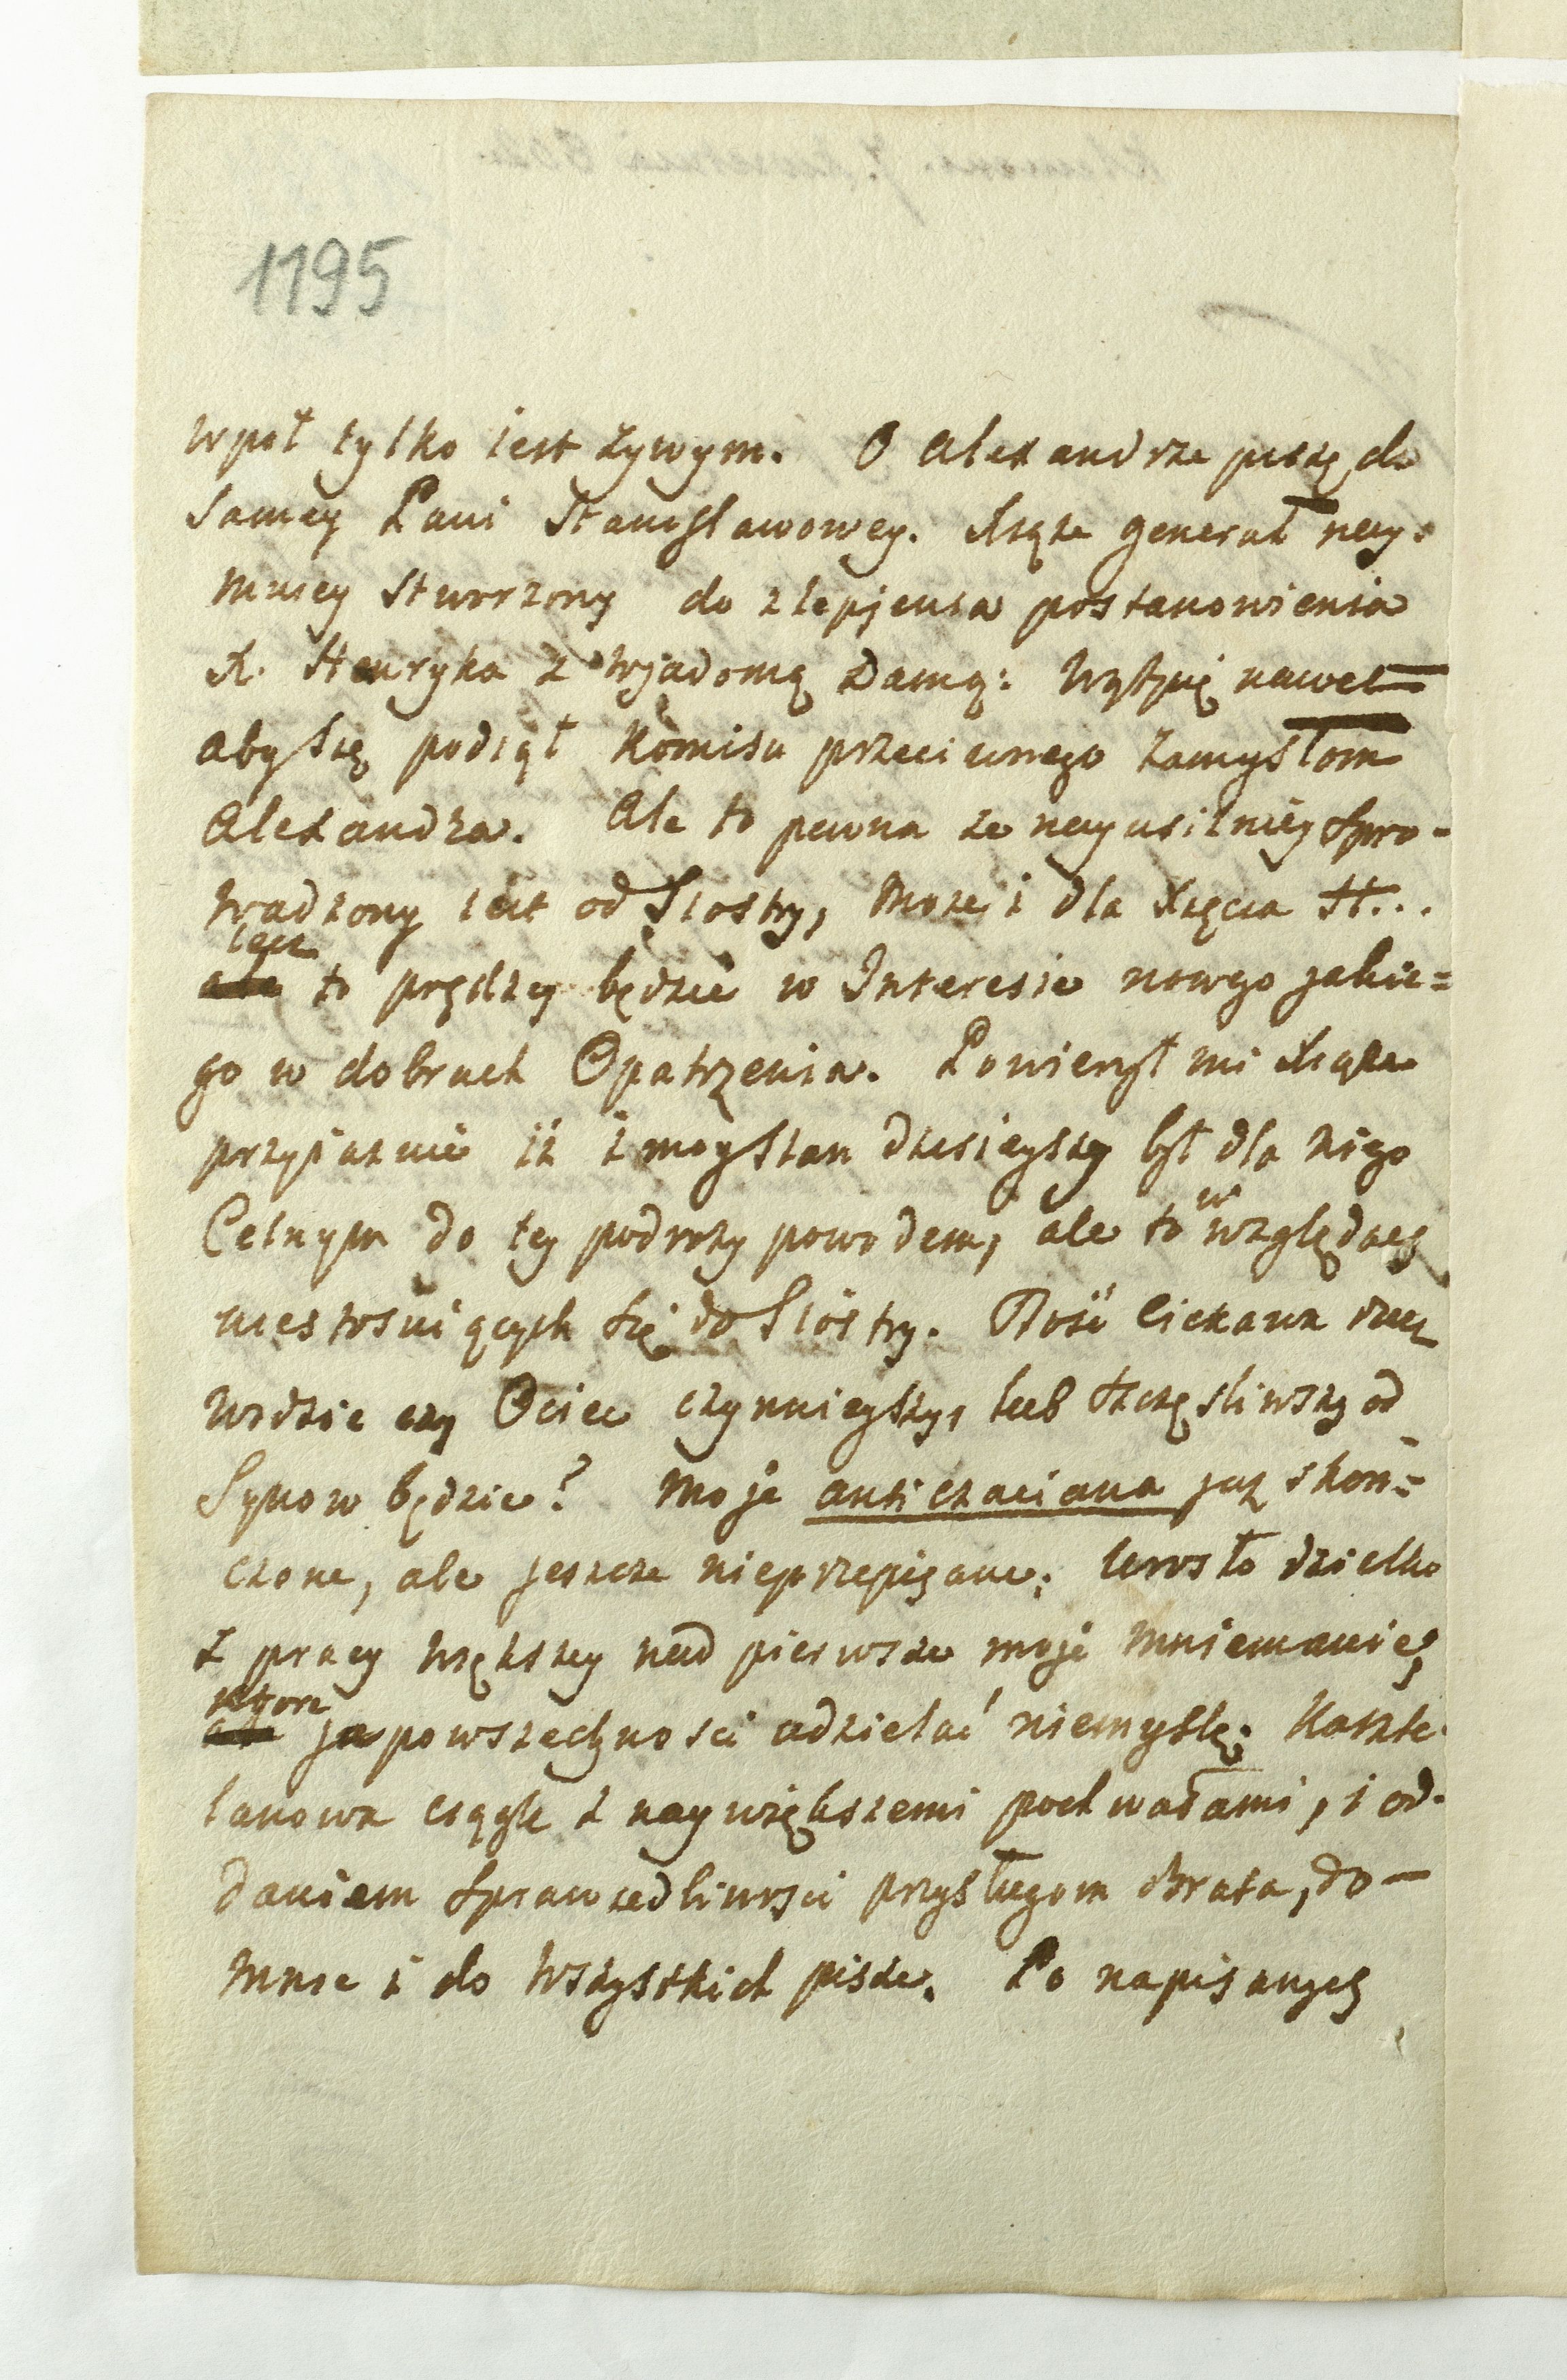 1195
wpoł tylko iest żywym. O Alexandrze piszę do
Samey Pani Stanisławowey. Xiąże generał nay-
mniey stworzony do zlepjenia postanowienia
X. Henryka z wjadomą Damą: wątpię nawet
aby się podiął Komisu przeciwnego zamysłom
Alexandra. Ale to pewna że nayusilniey spro-
wadzony iest od Siostry, może i dla Xięcia H...
lecz
ale to prędzey będzie w Interesie nowego jakie=
go w dobrach Opatrzenia. Powierzył mi Xiąże
przyiaźnie iż i moy stan dzisieyszy był dla niego
Celnym do tey podroży powodem, ale to w względach
niestosuiących się do Siostry. Dość ciekawa rzecz
widzie czy Ociec czynnieyszy, lub szczęśliwszy od
Synow będzie? Moje anticzaciana już skoń=
czone, ale jeszcze nieprzepisane; urosło dziełko
z pracy większey nad pierwsze moje mniemanie,
ktore
ale ja powszechności udzielać niemyślę. Kaszte-
lanowa ciągle z naywiększemi pochwałami, i od-
daniem sprawiedliwości przysługom Brata, do
mnie i do wszystkich pisze. Po napisanych